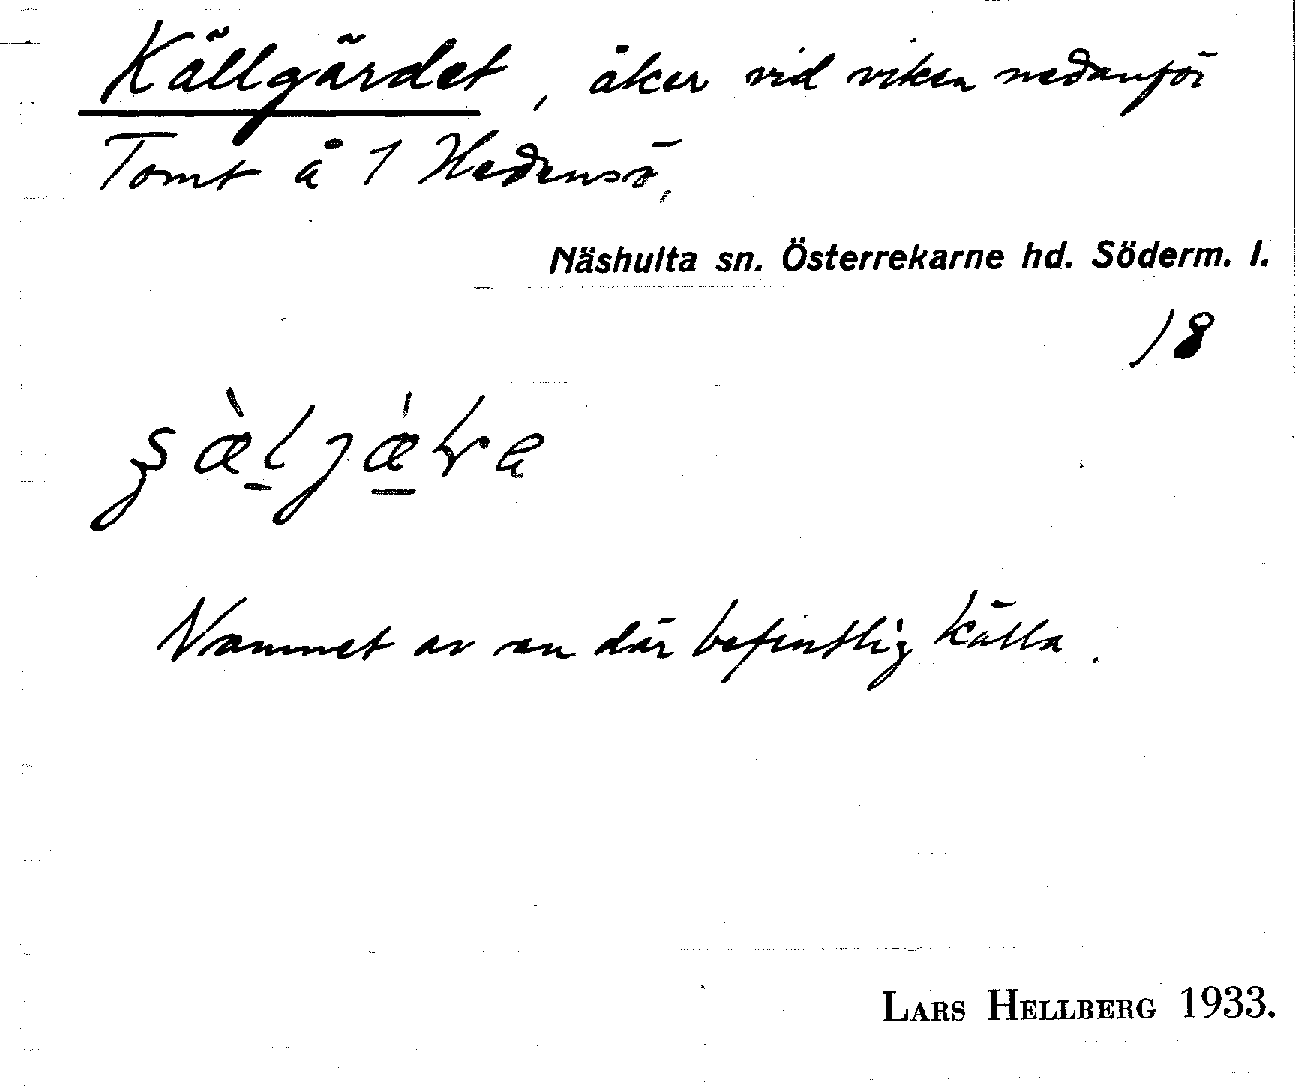 Källgärdet, åker vid viken nedanför
Tomt å 1 Hedensö,
Näshulta sn. Österrekarne hd. Söderm. l.
18
Namnet av en där befintlig källa.
LARS HELLBERG 1933.